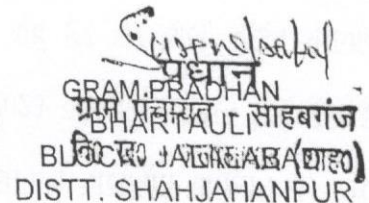 प्रधान
GRAM PRADHAN
ग्राम पंचायत - साहबगंज
BHARTAULI
BLOCK JALALABAD (शाह0)
DISTT. SHAHJAHANPUR